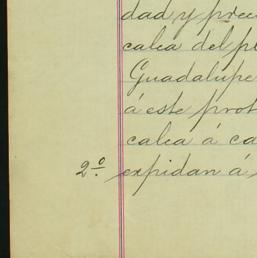 dad y prec
calca del p
Guadalupe
á este prot
calca á ca
2º expidan á